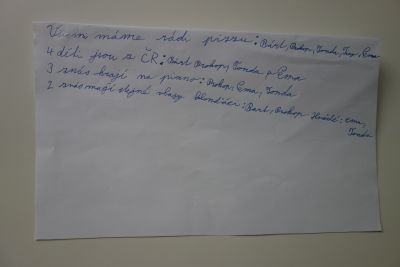 Všichni máme rádi pizzu: Bárt, Prokop, Tonda, Ema
4 děti jsou z ČR: Bárt Prokop, Tonda a Ema
3 z nás hrají na piano: Prokop, Ema, Tonda
2 z nás mají stejné vlasy blonďáci: Bart, Prokop Hnědé: ema,
Tonda